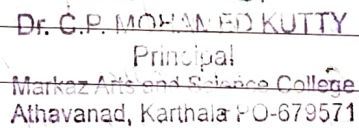 Dr. C.P. MOHAMED KUTTY
Principal
Markaz Arts and Science College
Athavanad, Karthala PO-679571